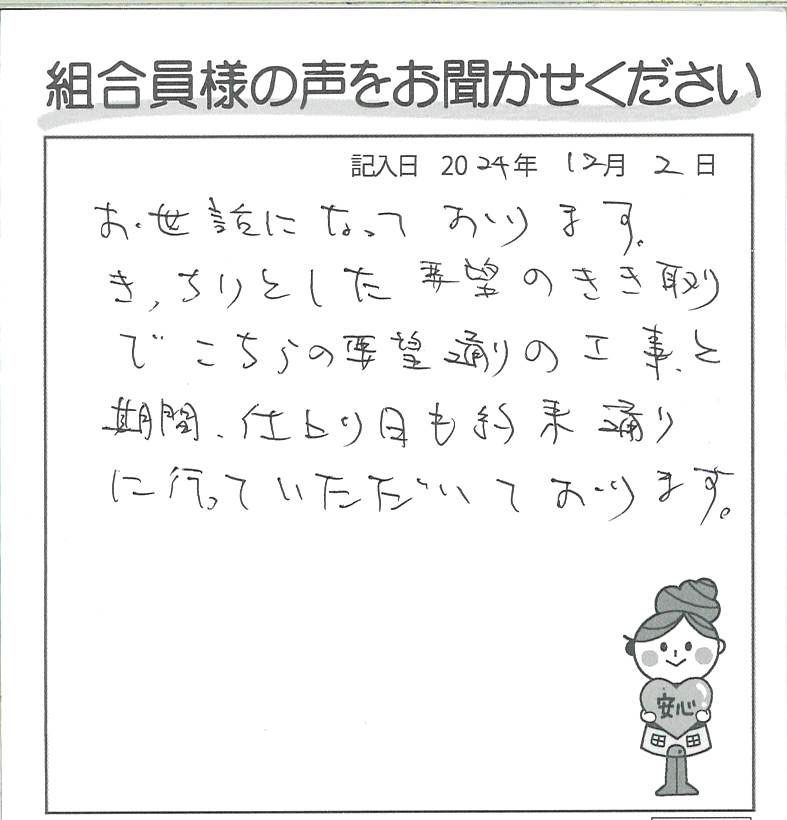 組合員様の声をお聞かせください
記入日 2024年 12月 2日
お世話になっております。
きっちりとした要望のきき取り
でこちらの要望通りの工事と
期間、仕上り日も約束通り
に行っていただいております。
安心